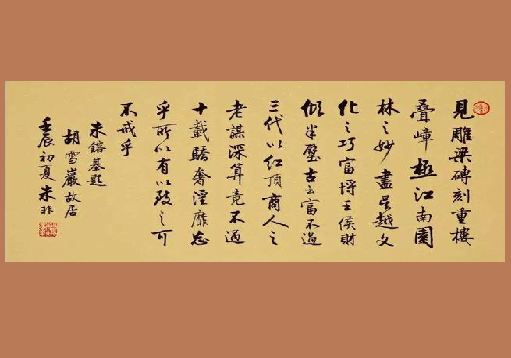 見雕梁磚刻重樓
疊嶂極江南園
林之妙盡吳越文
化之巧富埒王侯財
傾半壁古云富不過
三代以紅頂商人之
老謀深算竟不過
十載驕奢淫靡忘
乎所以有以致之可
不戒乎
朱鎔基題
胡雪巖故居
壬辰初夏米非